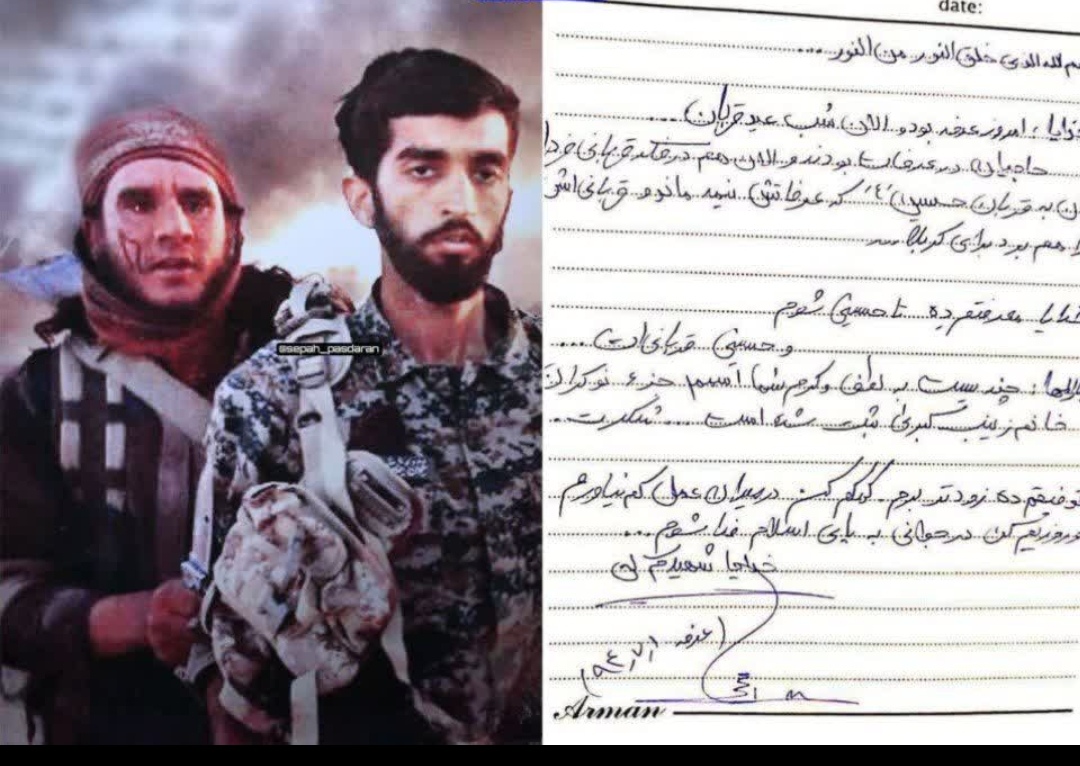 @sepah_pasdaran
date:
م لله الذی خلق النور من النور ....
خدایا، امروز عرفه بود و الان شب عید قربان ....
حاجیان در عرفات بودند و الان هم در فکر قربانی فردا
به قربان حسین (ع) که عرفاتش نیمه ماند و قربانی اش
هم برد برای کربلا ....
خدایا معرفتم ده تا حسینی شوم
و حسینی قربانی ات ....
بارالها: چندیست به لطف و کرم شما اسم جزء نوکران
خانم زینب کبری ثبت شده است .... شکرت ..
توفیقم ده زودتر برم. کمکم کن در میدان عمل کم نیاورم
و روزیم کن در جوانی به پای اسلام فدا شوم ...
خدایا شهیدم کن
عرفه
Arman